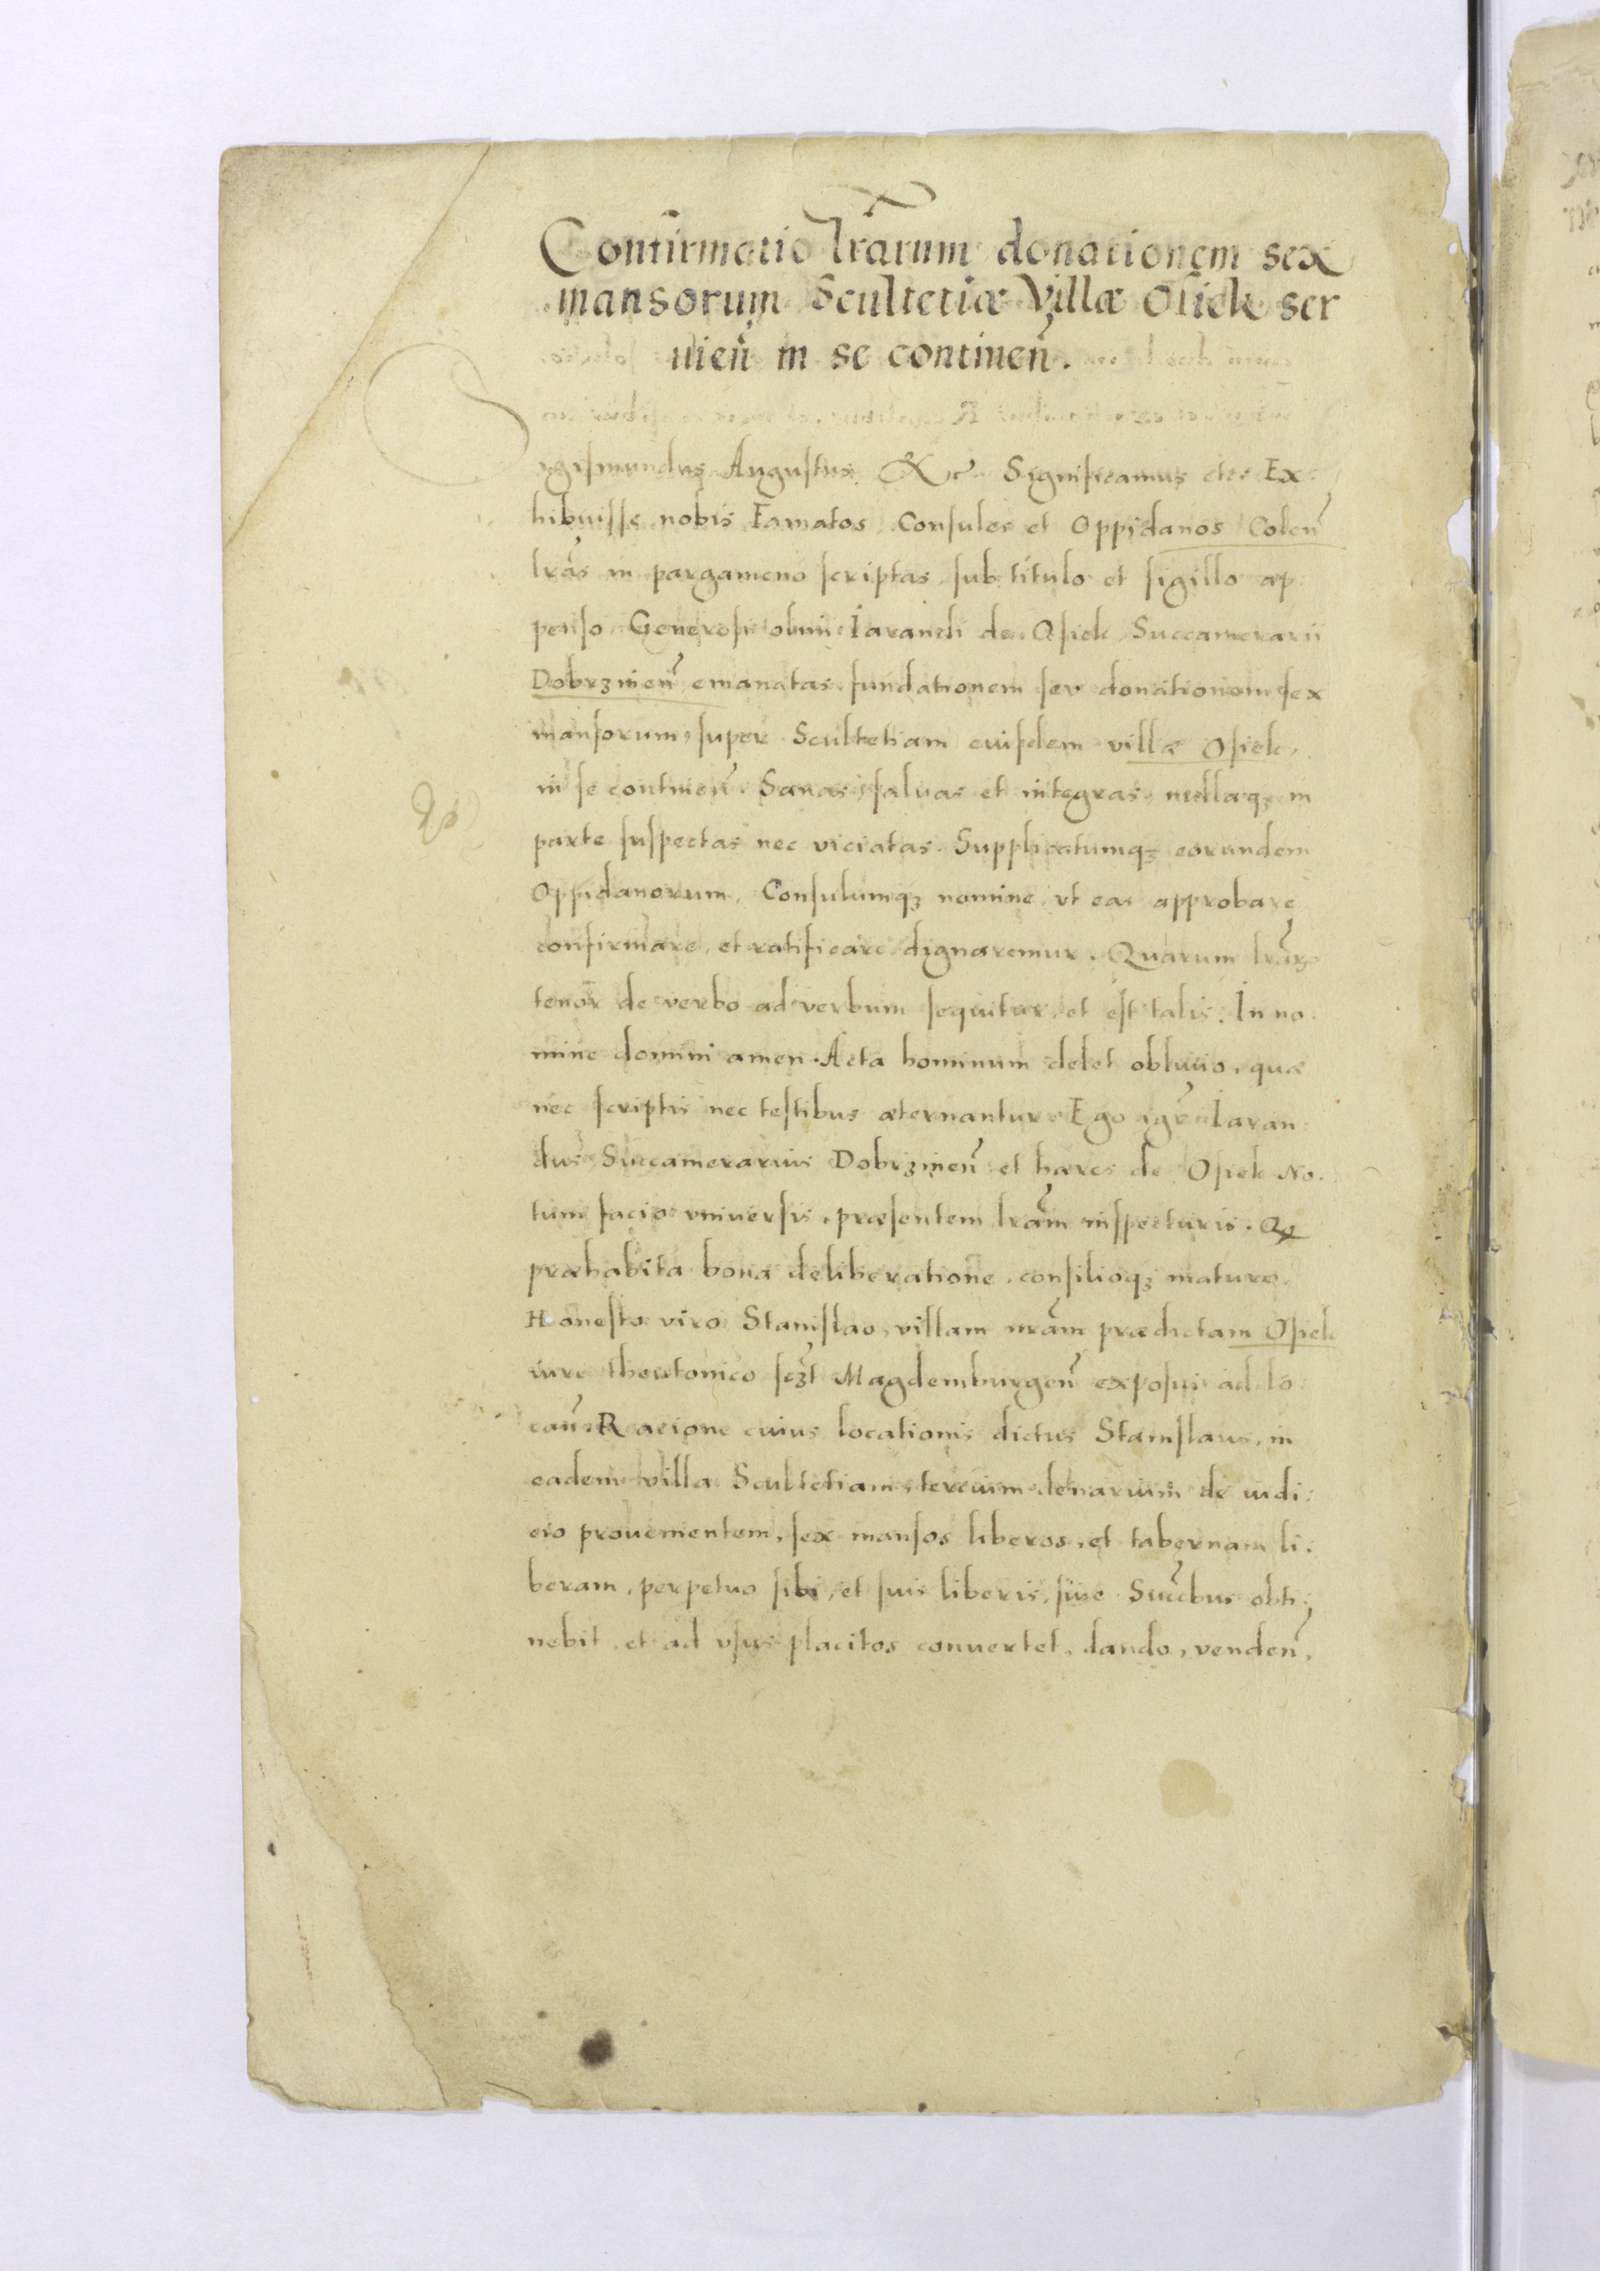 Confirmatio lr̃arum donationem sex
mansorum Scultetiæ Villæ Osiek ser
uien̄ in se continen̄.
Sigismundus Augustus &c. Significamus etc. Ex
hibuisse nobis Famatos Consules et Oppidanos Colen̄
lr̃as in pargameno scriptas sub titulo et sigillo ap
penso Generosi olim Iarandi de Osiek Succamerarii
Dobrzinen̄ emanatas fundationem seu donationem sex
mansorum, super Scultetiam euisdem villæ Osiek,
in se continen̄. Sanas, saluas et integras, nullaqȝ in
parte suspectas nec viciatas. Supplicatumqȝ eorundem
Oppidanorum, Consulumqȝ nomine, vt eas approbare
confirmare, et ratificare dignaremur. Quarum lr̃arȝ
tenor de verbo ad verbum sequitur, et est talis. In no
mine domini amen. Acta hominum delet obliuio, quæ
nec scriptis nec testibus æternantur. Ego igr̃ Iaran
dus Succamerarius Dobrzinen̄ et hæres de Osiek No.
tum facio vniuersis, præsentem lr̃am inspecturis. Qꝫ
præhabita bona deliberatione, consilioqȝ maturo,
Honesto viro Stanislao, villam nr̃am prædictam Osiek
iure theutonico sczt̃ Magdemburgen̄ exposui ad lo
can̄. Racione cuius locationis dictus Stanislaus, in
eadem villa Scultetiam, tercium denarium de iudi:
cio prouenientem, sex mansos liberos, et tabernam li:
beram, perpetuo sibi, et suis liberis, siue Succ̃bus obti:
nebit, et ad vsus placitos conuertet, dando, venden̄,